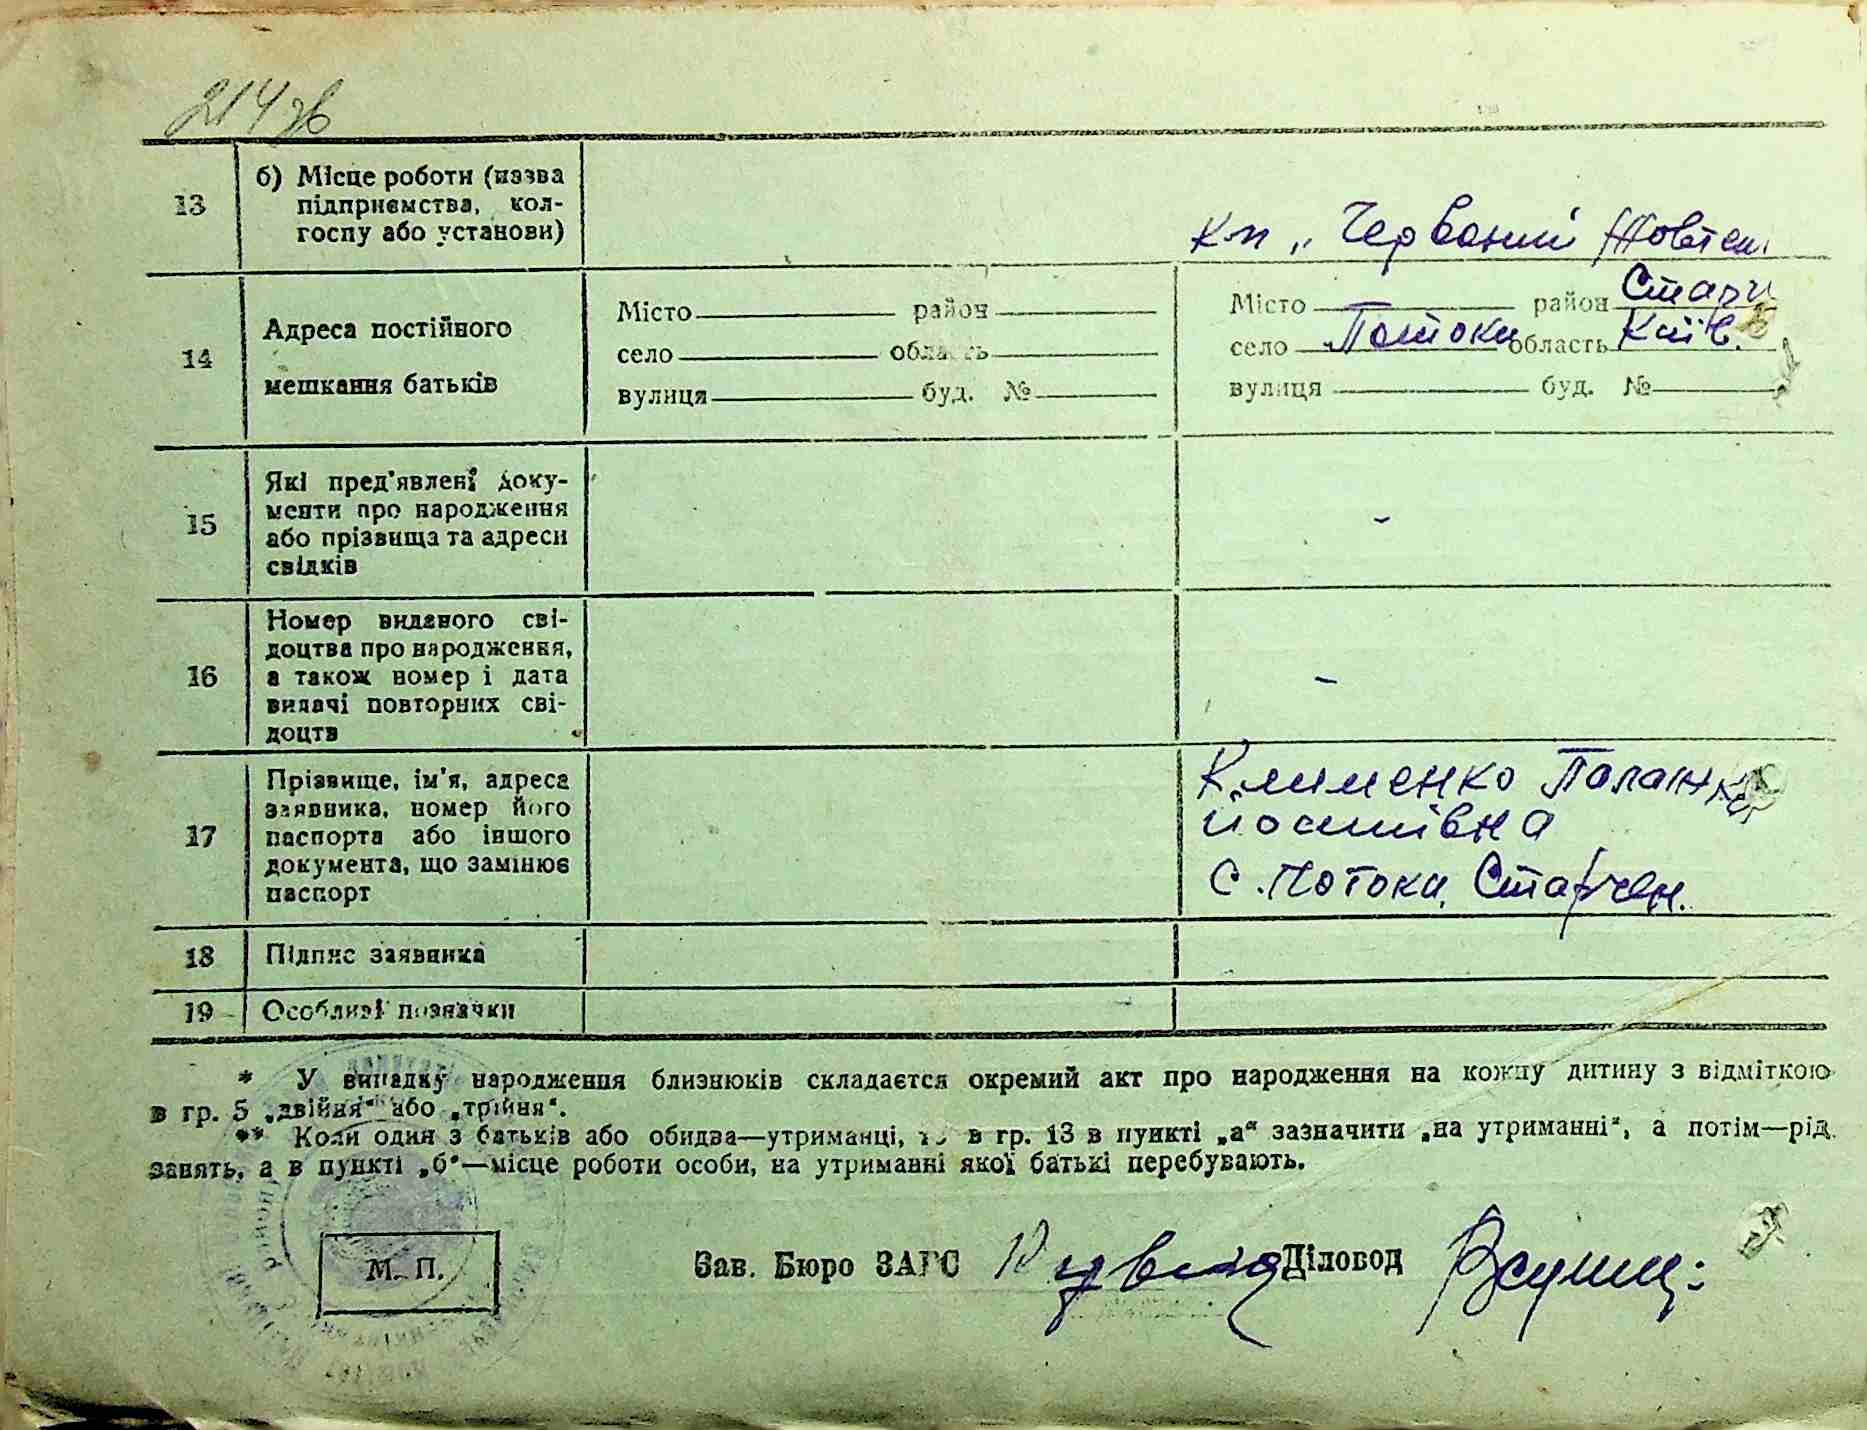 214 зв
13
б) Місце роботи (назва
підприємства, кол-
госпу або установи)
кп „Червоний Жовтен
14
Адреса постійного
мешкання батьків
Місто район
село область
вулиця буд. №
Місто район Стари
село Потоки область Київ.
вулиця буд. №
15
Які пред'явлені доку-
менти про народження
або прізвища та адреси
свідків
-
16
Номер виданого сві-
доцтва про народження,
а також номер і дата
видачі повторних сві-
доцтв
-
17
Прізвище, ім'я, адреса
заявника, номер його
паспорта або іншого
документа, що замінює
паспорт
Клименко Палажка
Йосипівна
с. Потоки, Старчен.
18
Підпис заявника
19
Особливі позначки
* У випадку народження близнюків складається окремий акт про народження на кожну дитину з відміткою
в гр. 5 „двійня“ або „трійня“.
** Коли один з батьків або обидва—утриманці, то в гр. 13 в пункті „а“ зазначити „на утриманні“, а потім—рід
занять, а в пункті „б“—місце роботи особи, на утриманні якої батькі перебувають.
М. П.
Зав. Бюро ЗАГС
Діловод